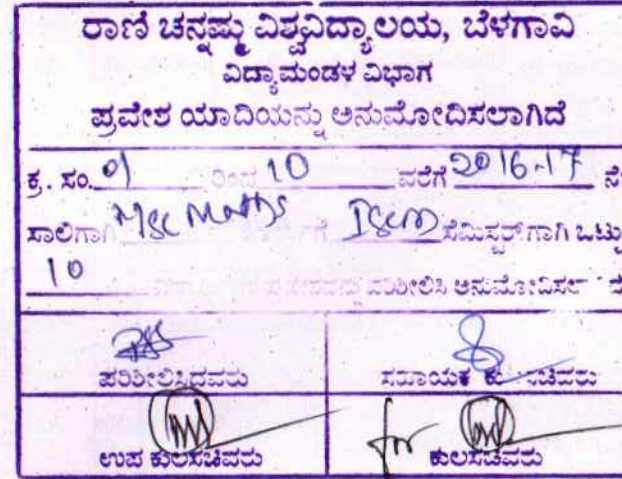 ರಾಣಿ ಚನ್ನಮ್ಮ ವಿಶ್ವವಿದ್ಯಾಲಯ, ಬೆಳಗಾವಿ
ವಿದ್ಯಾಮಂಡಳ ವಿಭಾಗ
ಪ್ರವೇಶ ಯಾದಿಯನ್ನು ಅನುಮೋದಿಸಲಾಗಿದೆ
ಕ್ರ. ಸಂ. 01 ರಿಂದ 10 ವರೆಗೆ 2016-17 ನೇ
ಸಾಲಿಗಾಗಿ MSc Maths ISem ಸೆಮಿಸ್ಟರ್‌ಗಾಗಿ ಒಟ್ಟು
10 ಪರಿಶೀಲಿಸಿ
ಪರಿಶೀಲಿಸಿದವರು ಸಹಾಯಕ ಕುಲಸಚಿವರು
ಉಪ ಕುಲಸಚಿವರು for ಕುಲಸಚಿವರು